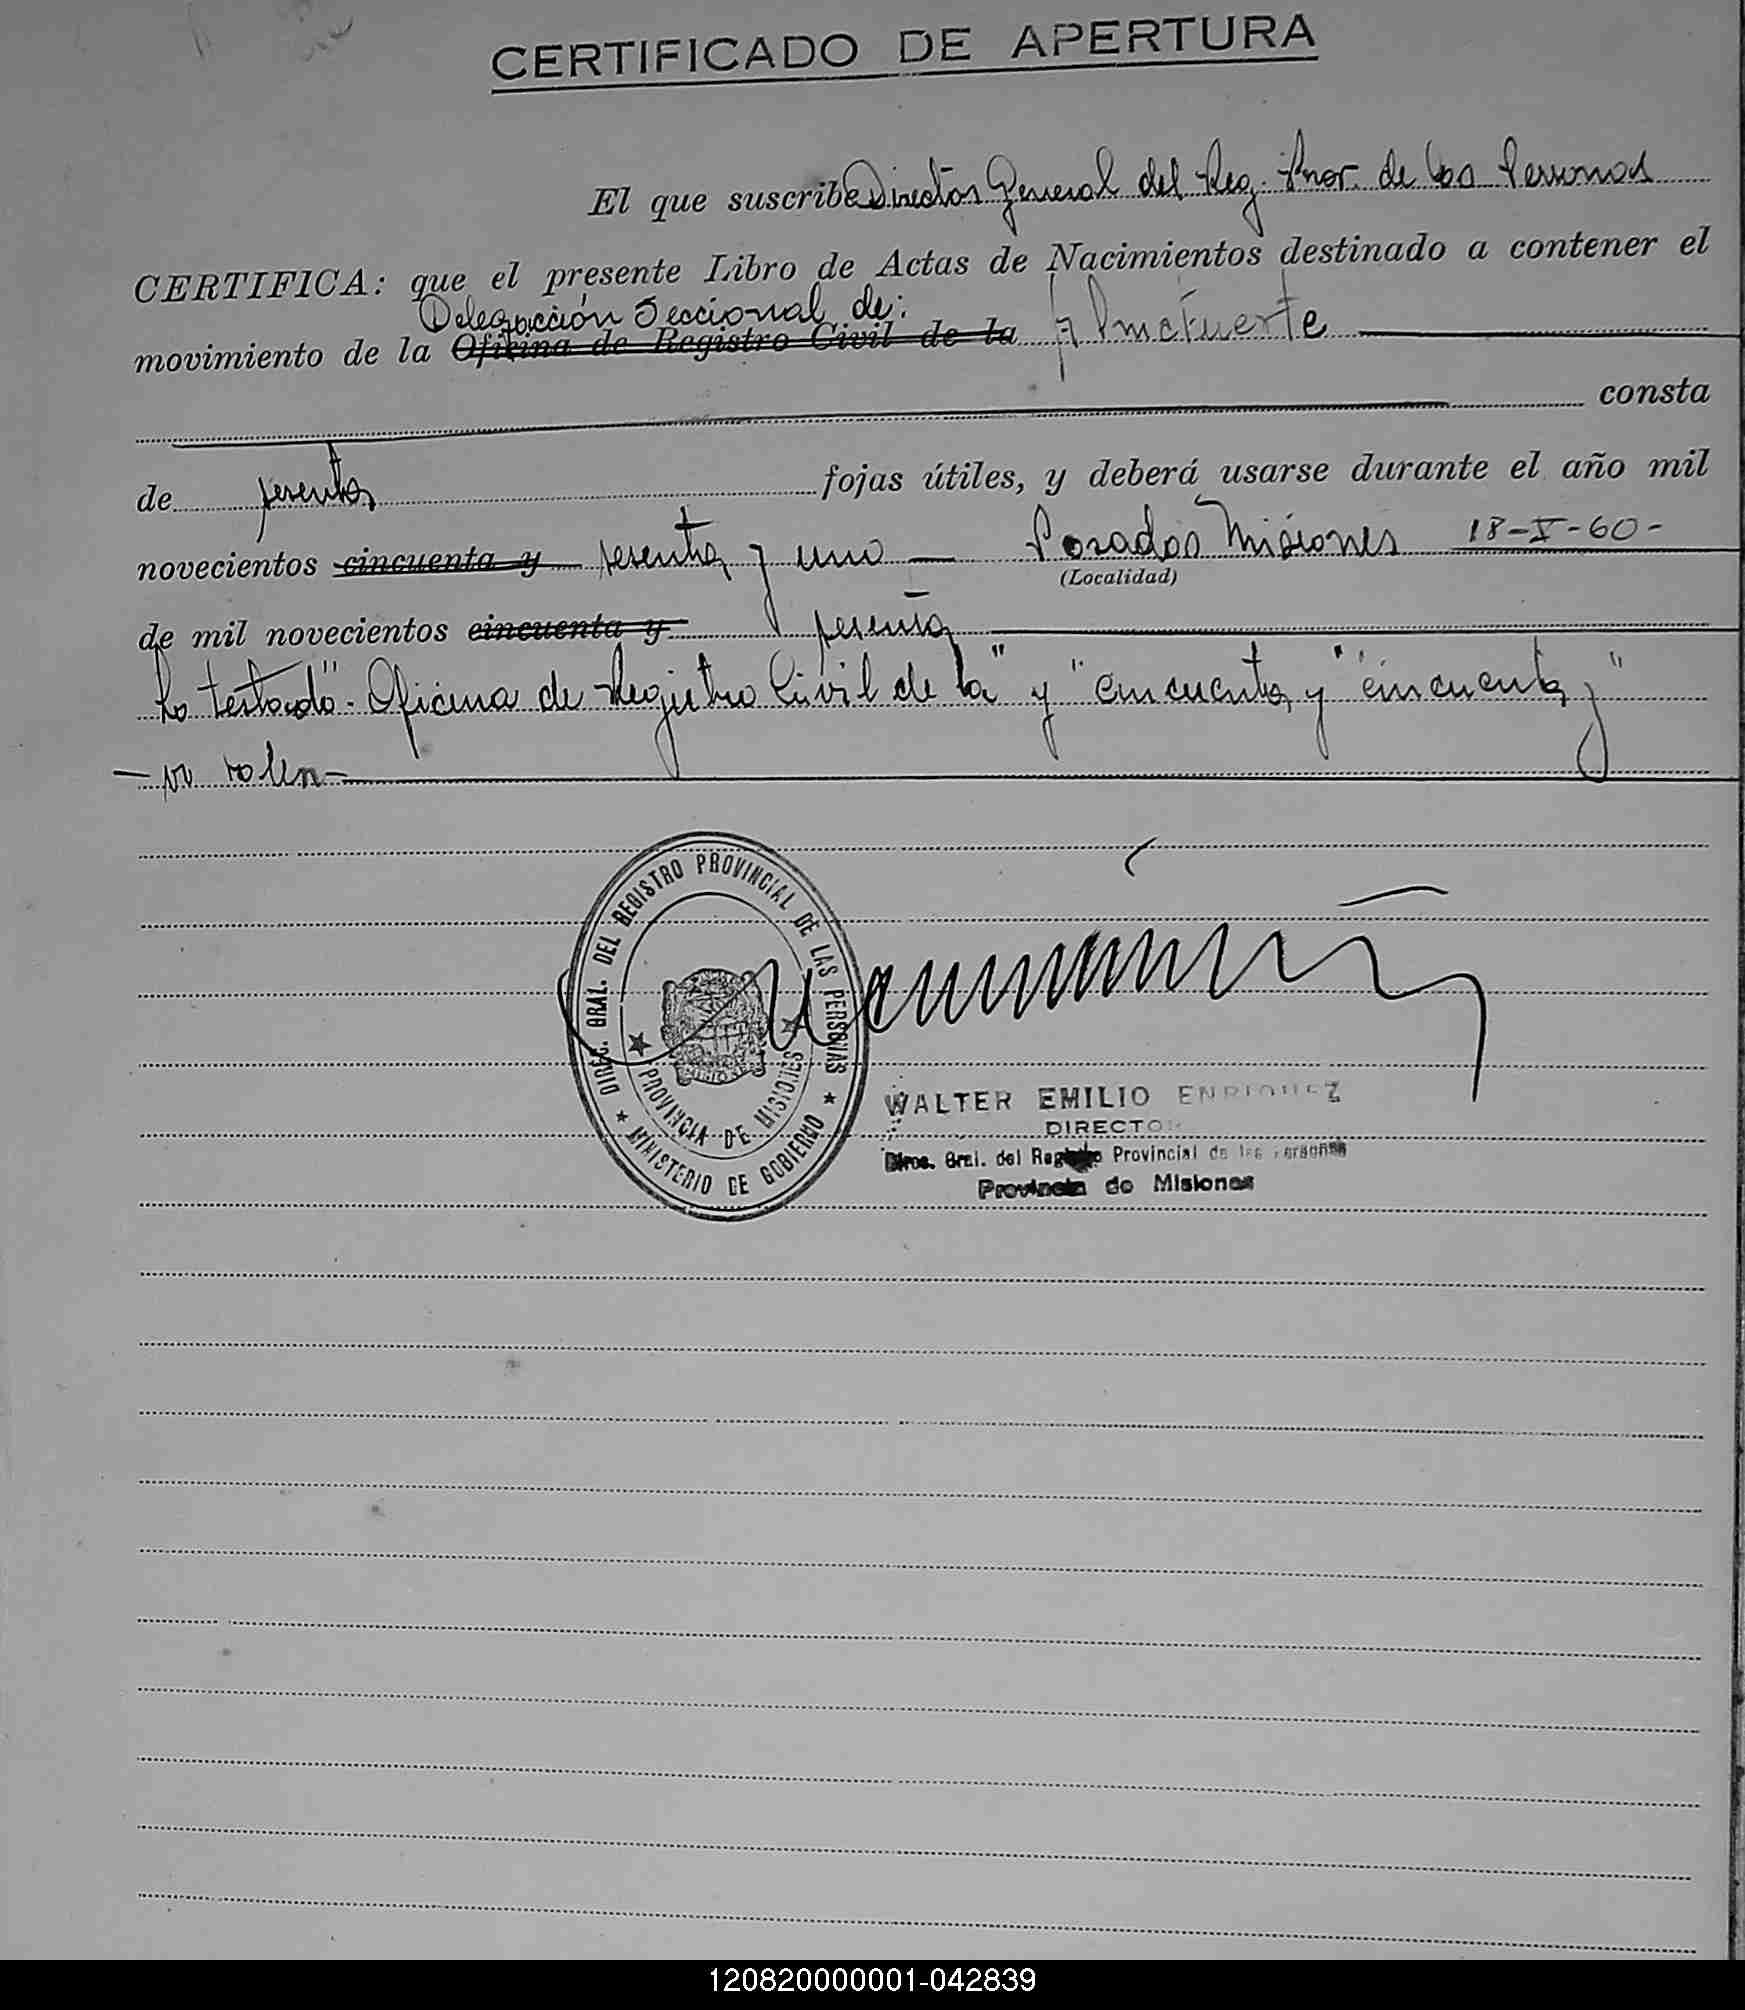 CERTIFICADO DE APERTURA
El que suscribe Director General del Reg. Prov. de las Personas
CERTIFICA: que el presente Libro de Actas de Nacimientos destinado a contener el
Delegación Seccional de:
movimiento de la Oficina de Registro Civil de la Almafuerte
consta
de sesenta fojas útiles, y deberá usarse durante el año mil
novecientos cincuenta y sesenta y uno — Posadas Misiones 18-V-60-
(Localidad)
de mil novecientos cincuenta y sesenta
Lo testado "Oficina de Registro Civil de la" y "cincuenta y" "cincuenta y"
— no valen —
DIREC. GRAL. DEL REGISTRO PROVINCIAL DE LAS PERSONAS
★ MINISTERIO DE GOBIERNO ★
★ PROVINCIA DE MISIONES ★
WALTER EMILIO ENRIQUEZ
DIRECTOR
Direc. Gral. del Registro Provincial de las Personas
Provincia de Misiones
120820000001-042839